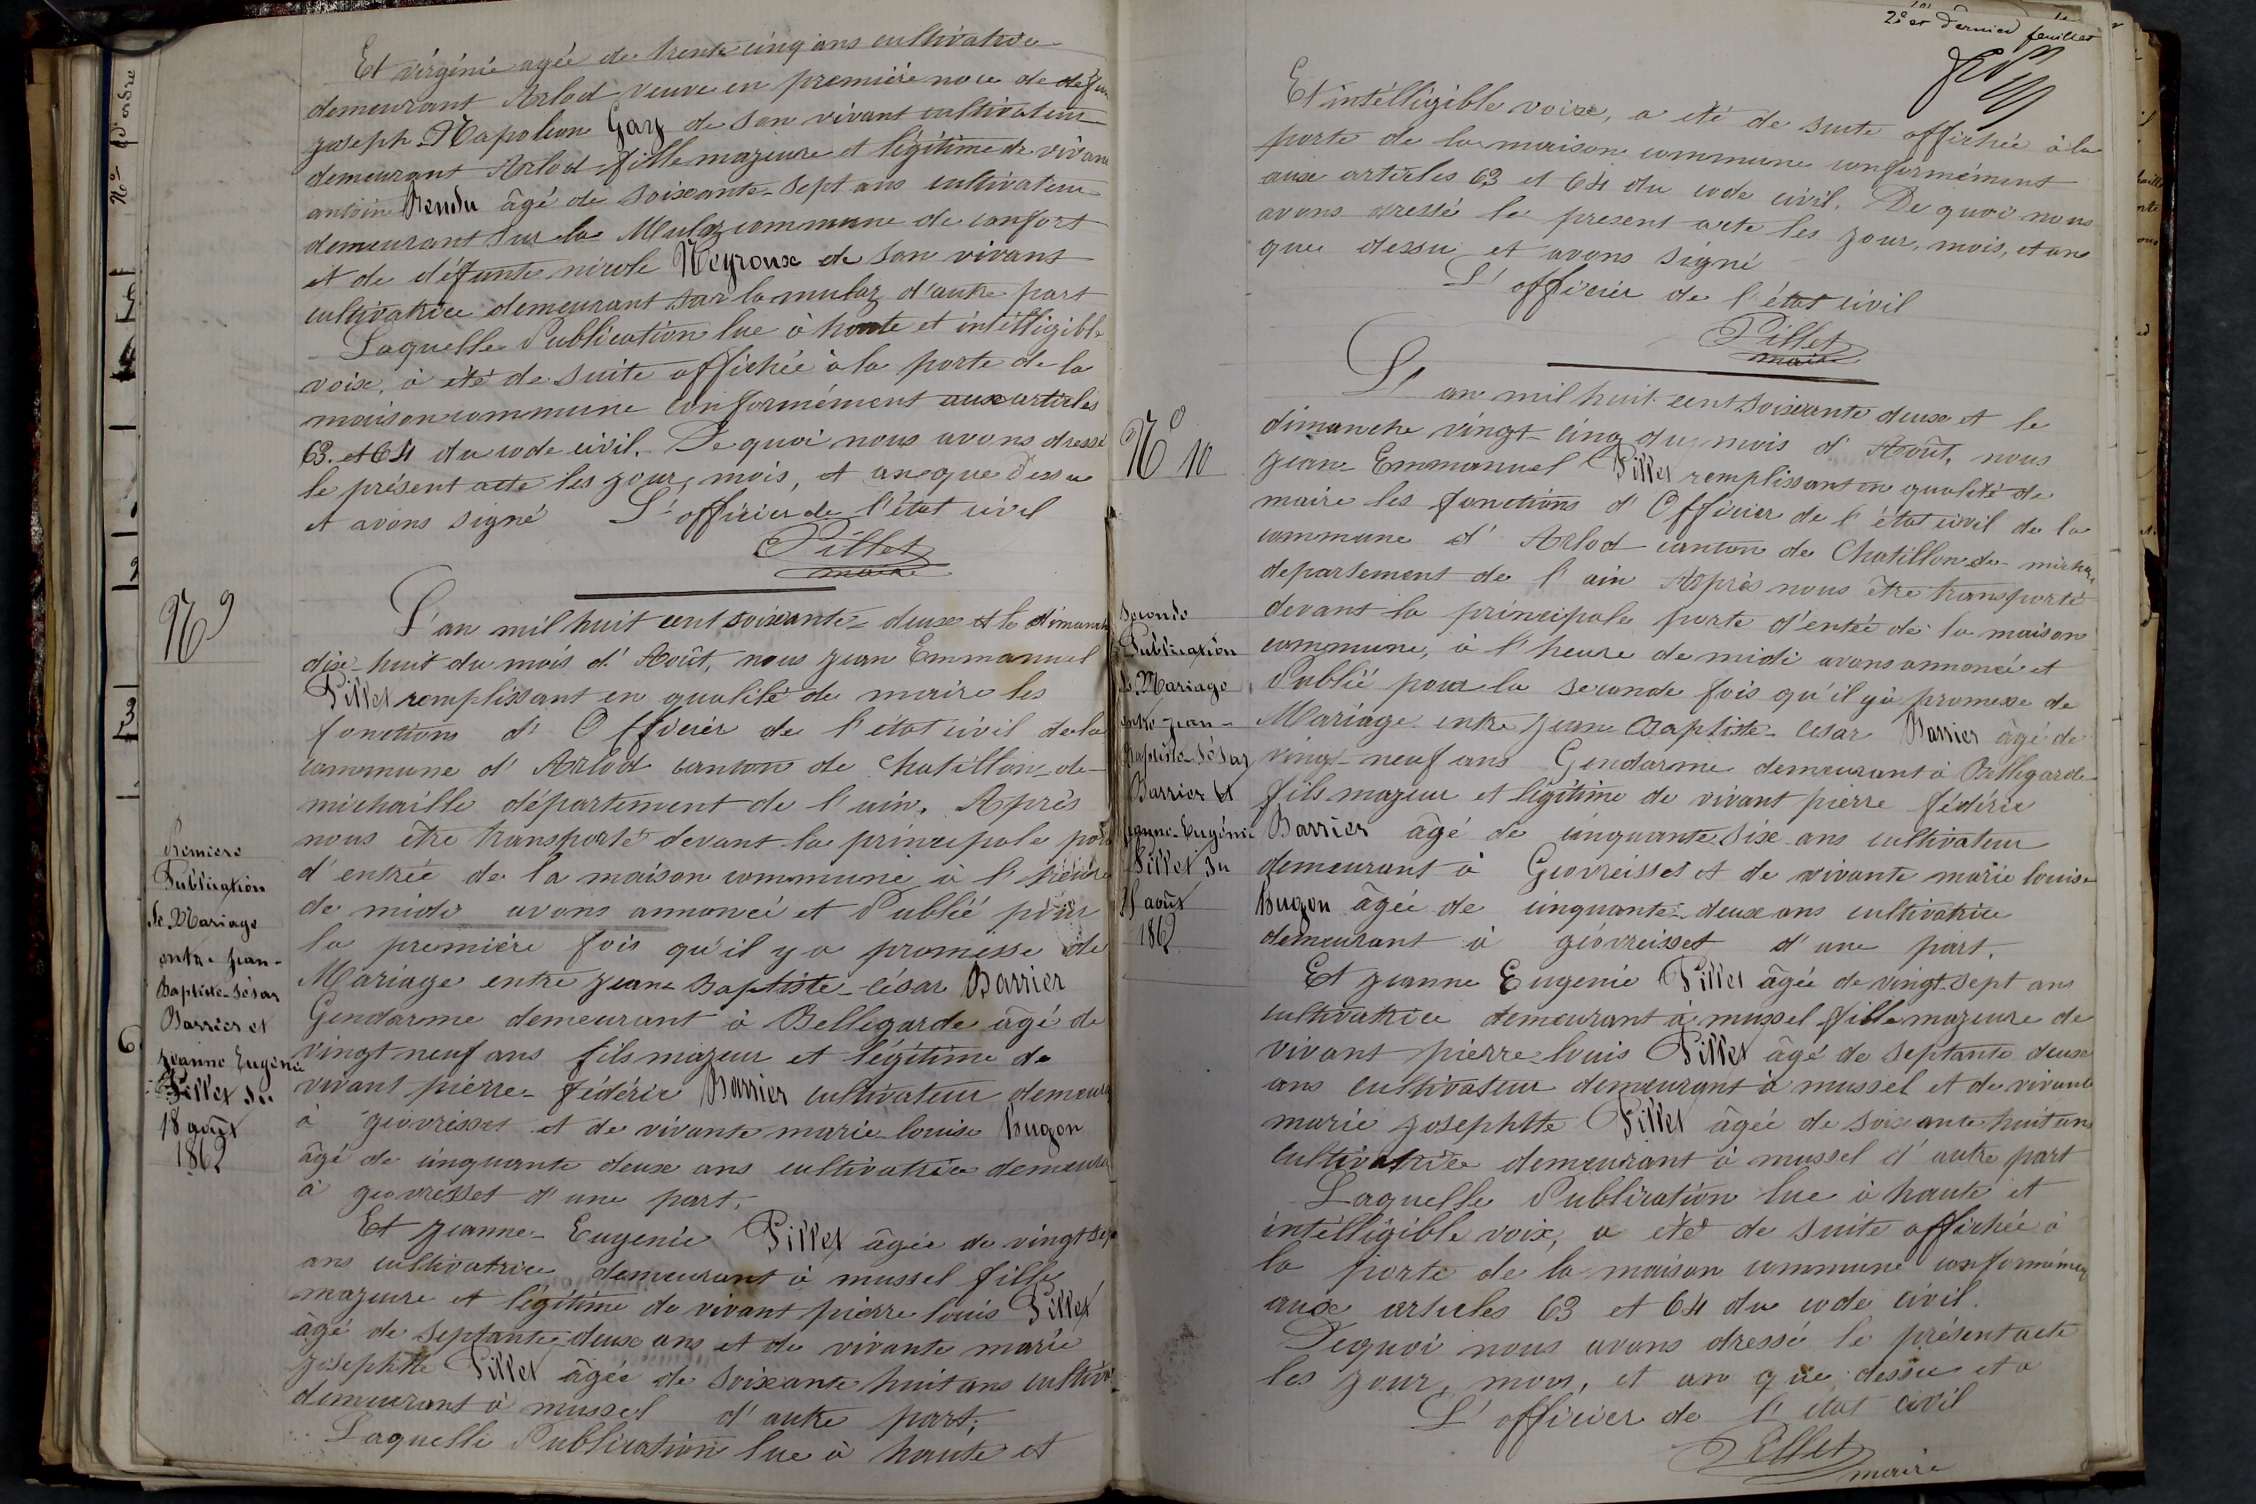 Et virginie agée de trente cinq ans cultivatrice
demeurant Arlod veuve en première noce de defun
joseph Napoléon Gay de son vivant cultivateur
demeurant Arlod fille majeure et légitime de vivant
antoine Rendu âgé de soixante-sept ans cultivateur
demeurant sur la Mulaz commune de confort
et de défunte nicole Neyroux de son vivant
cultivatrice demeurant sur la mulaz d'autre part
Laquelle Publication lue à haute et intélligible
voix, à été de suite affichée à la porte de la
maison commune conformément aux articles
63. et 64 du code civil. De quoi nous avons dressé
le présent acte les jour, mois, et an que dessu
et avons signé L'officier de l'état civil
Pillet
maire
N° 9
L'an mil huit cent soixante-deux et le dimanch
dix-huit du mois d'Août, nous jean Emmanuel
Pillet remplissant en qualité de maire les
fonctions d'Officier de l'état civil de la
commune d'Arlod canton de Chatillon-de-
michaille département de l'ain. Après
nous être transporté devant la principale port
d'entrée de la maison commune à l'heure
de midi avons annoncé et Publié pour
la première fois qu'il y a promesse de
Mariage entre jean Baptiste-césar Barrier
Gendarme demeurant à Bellegarde âgé de
vingt neuf ans fils majeur et légitime de
vivant pierre-féderic Barrier cultivateur demeura
à géovrisset et de vivante marie louise Hugon
âgé de cinquante deux ans cultivatrice demeura
à geovresset d'une part.
Et jeanne-Eugenie Pillet âgée de vingt sep
ans cultivatrice demeurant à mussel fille
majeure et légitime de vivant pierre louis Pillet
âgé de septante-deux ans et de vivante marie
josephtte Pillet âgée de soixante huit ans cultiva
demeurant à mussel d'autre part,
Laquelle Publication lue à haute et
Premiere
Publication
de Mariage
entre jean-
Baptiste-César
Barrier et
jeanne Eugenie
Pillet du
18 août
1862
N° d'ordre
2e et dernier feuillet
Et intélligible voix, a été de suite affichée à la
porte de la maison commune conformément
aux articles 63 et 64 du code civil. De quoi nous
avons dressé le present acte les jour, mois, et an
que dessu et avons signé
L'officier de l'état civil
Pillet
maire
N° 10
L'an mil huit cent soixante deux et le
dimanche vingt-cinq du mois d'Août, nous
jean Emmanuel Pillet remplissant en qualité de
maire les fonctions d'Officier de l'état civil de la
commune d'Arlod canton de Chatillon-de-michai
departement de l'ain Après nous être transporté
devant la principale porte d'entée de la maison
commune, à l'heure de midi avons annoncé et
Publié pour la seconde fois qu'il y à promesse de
Mariage entre jean Baptiste-cesar Barrier âgé de
vingt-neuf ans Gendarme demeurant à Bellegarde
fils majeur et légitime de vivant pierre féderic
Barrier âgé de cinquante six ans cultivateur
demeurant à Geovreisset et de vivante marie louise
Hugon âgée de cinquante-deux ans cultivatrice
demeurant à géovreisset d'une part.
Et jeanne Eugenie Pillet âgée de vingt-sept ans
cultivatrice demeurant à mussel fille majeure de
vivant pierre-louis Pillet âgé de septante deux
ans cultivateur demeurant à mussel et de vivante
marie josephtte Pillet âgée de soixante huit ans
cultivatrice demeurant à mussel d'autre part
Laquelle Publication lue à haute et
intélligible voix, a été de suite affichée à
la porte de la maison commune conformémen
aux articles 63 et 64 du code civil.
De quoi nous avons dressé le présent acte
les jour, mois, et an que dessu et a
L'officier de l'état civil
Pillet
maire
Seconde
Publication
de Mariage
entre jean-
Baptiste-Césaz
Barrier et
jeanne-Eugénie
Pillet du
25 août
1862